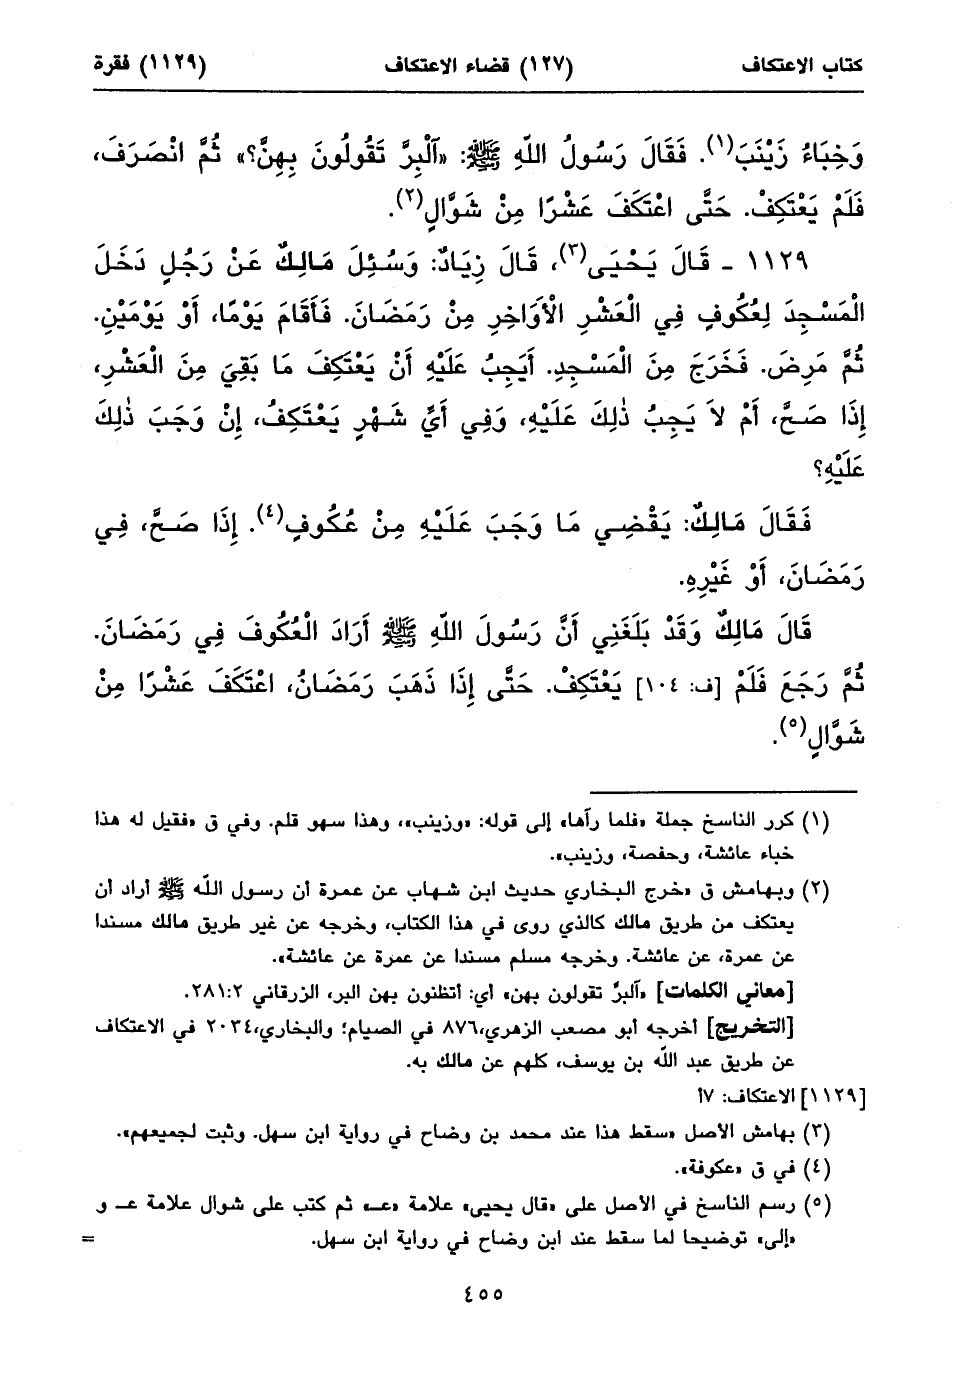 كتاب الاعتكاف (١٢٧) قضاء الاعتكاف (١١٢٩) فقرة
وَخِبَاءُ زَيْنَبَ(١). فَقَالَ رَسُولُ اللّهِ ﷺ: «آلْبِرَّ تَقُولُونَ بِهِنَّ؟» ثُمَّ انْصَرَفَ،
فَلَمْ يَعْتَكِفْ. حَتَّى اعْتَكَفَ عَشْرًا مِنْ شَوَّالٍ(٢).
١١٢٩ ـ قَالَ يَحْيَى(٣)، قَالَ زِيَادٌ: وَسُئِلَ مَالِكٌ عَنْ رَجُلٍ دَخَلَ
الْمَسْجِدَ لِعُكُوفٍ فِي الْعَشْرِ الْأَوَاخِرِ مِنْ رَمَضَانَ. فَأَقَامَ يَوْمًا، أَوْ يَوْمَيْنِ.
ثُمَّ مَرِضَ. فَخَرَجَ مِنَ الْمَسْجِدِ. أَيَجِبُ عَلَيْهِ أَنْ يَعْتَكِفَ مَا بَقِيَ مِنَ الْعَشْرِ،
إِذَا صَحَّ، أَمْ لاَ يَجِبُ ذٰلِكَ عَلَيْهِ، وَفِي أَيِّ شَهْرٍ يَعْتَكِفُ، إِنْ وَجَبَ ذٰلِكَ
عَلَيْهِ؟
فَقَالَ مَالِكٌ: يَقْضِي مَا وَجَبَ عَلَيْهِ مِنْ عُكُوفٍ(٤). إِذَا صَحَّ، فِي
رَمَضَانَ، أَوْ غَيْرِهِ.
قَالَ مَالِكٌ وَقَدْ بَلَغَنِي أَنَّ رَسُولَ اللّهِ ﷺ أَرَادَ الْعُكُوفَ فِي رَمَضَانَ.
ثُمَّ رَجَعَ فَلَمْ [ف: ١٠٤] يَعْتَكِفْ. حَتَّى إِذَا ذَهَبَ رَمَضَانُ، اعْتَكَفَ عَشْرًا مِنْ
شَوَّالٍ(٥).
(١) كرر الناسخ جملة «فلما رآها» إلى قوله: «وزينب»، وهذا سهو قلم. وفي ق «فقيل له هذا
خباء عائشة، وحفصة، وزينب».
(٢) وبهامش ق «خرج البخاري حديث ابن شهاب عن عمرة أن رسول اللّه ﷺ أراد أن
يعتكف من طريق مالك كالذي روى في هذا الكتاب، وخرجه عن غير طريق مالك مسندا
عن عمرة، عن عائشة. وخرجه مسلم مسندا عن عمرة عن عائشة».
[معاني الكلمات] «آلبرَّ تقولون بهن» أي: أتظنون بهن البر، الزرقاني ٢٨١:٢.
[التخريج] أخرجه أبو مصعب الزهري،٨٧٦ في الصيام؛ والبخاري،٢٠٣٤ في الاعتكاف
عن طريق عبد اللّه بن يوسف، كلهم عن مالك به.
[١١٢٩] الاعتكاف: ٧أ
(٣) بهامش الأصل «سقط هذا عند محمد بن وضاح في رواية ابن سهل. وثبت لجميعهم».
(٤) في ق «عكوفة».
(٥) رسم الناسخ في الأصل على «قال يحيى» علامة «عـ» ثم كتب على شوال علامة عـ و
«إلى» توضيحا لما سقط عند ابن وضاح في رواية ابن سهل. =
٤٥٥